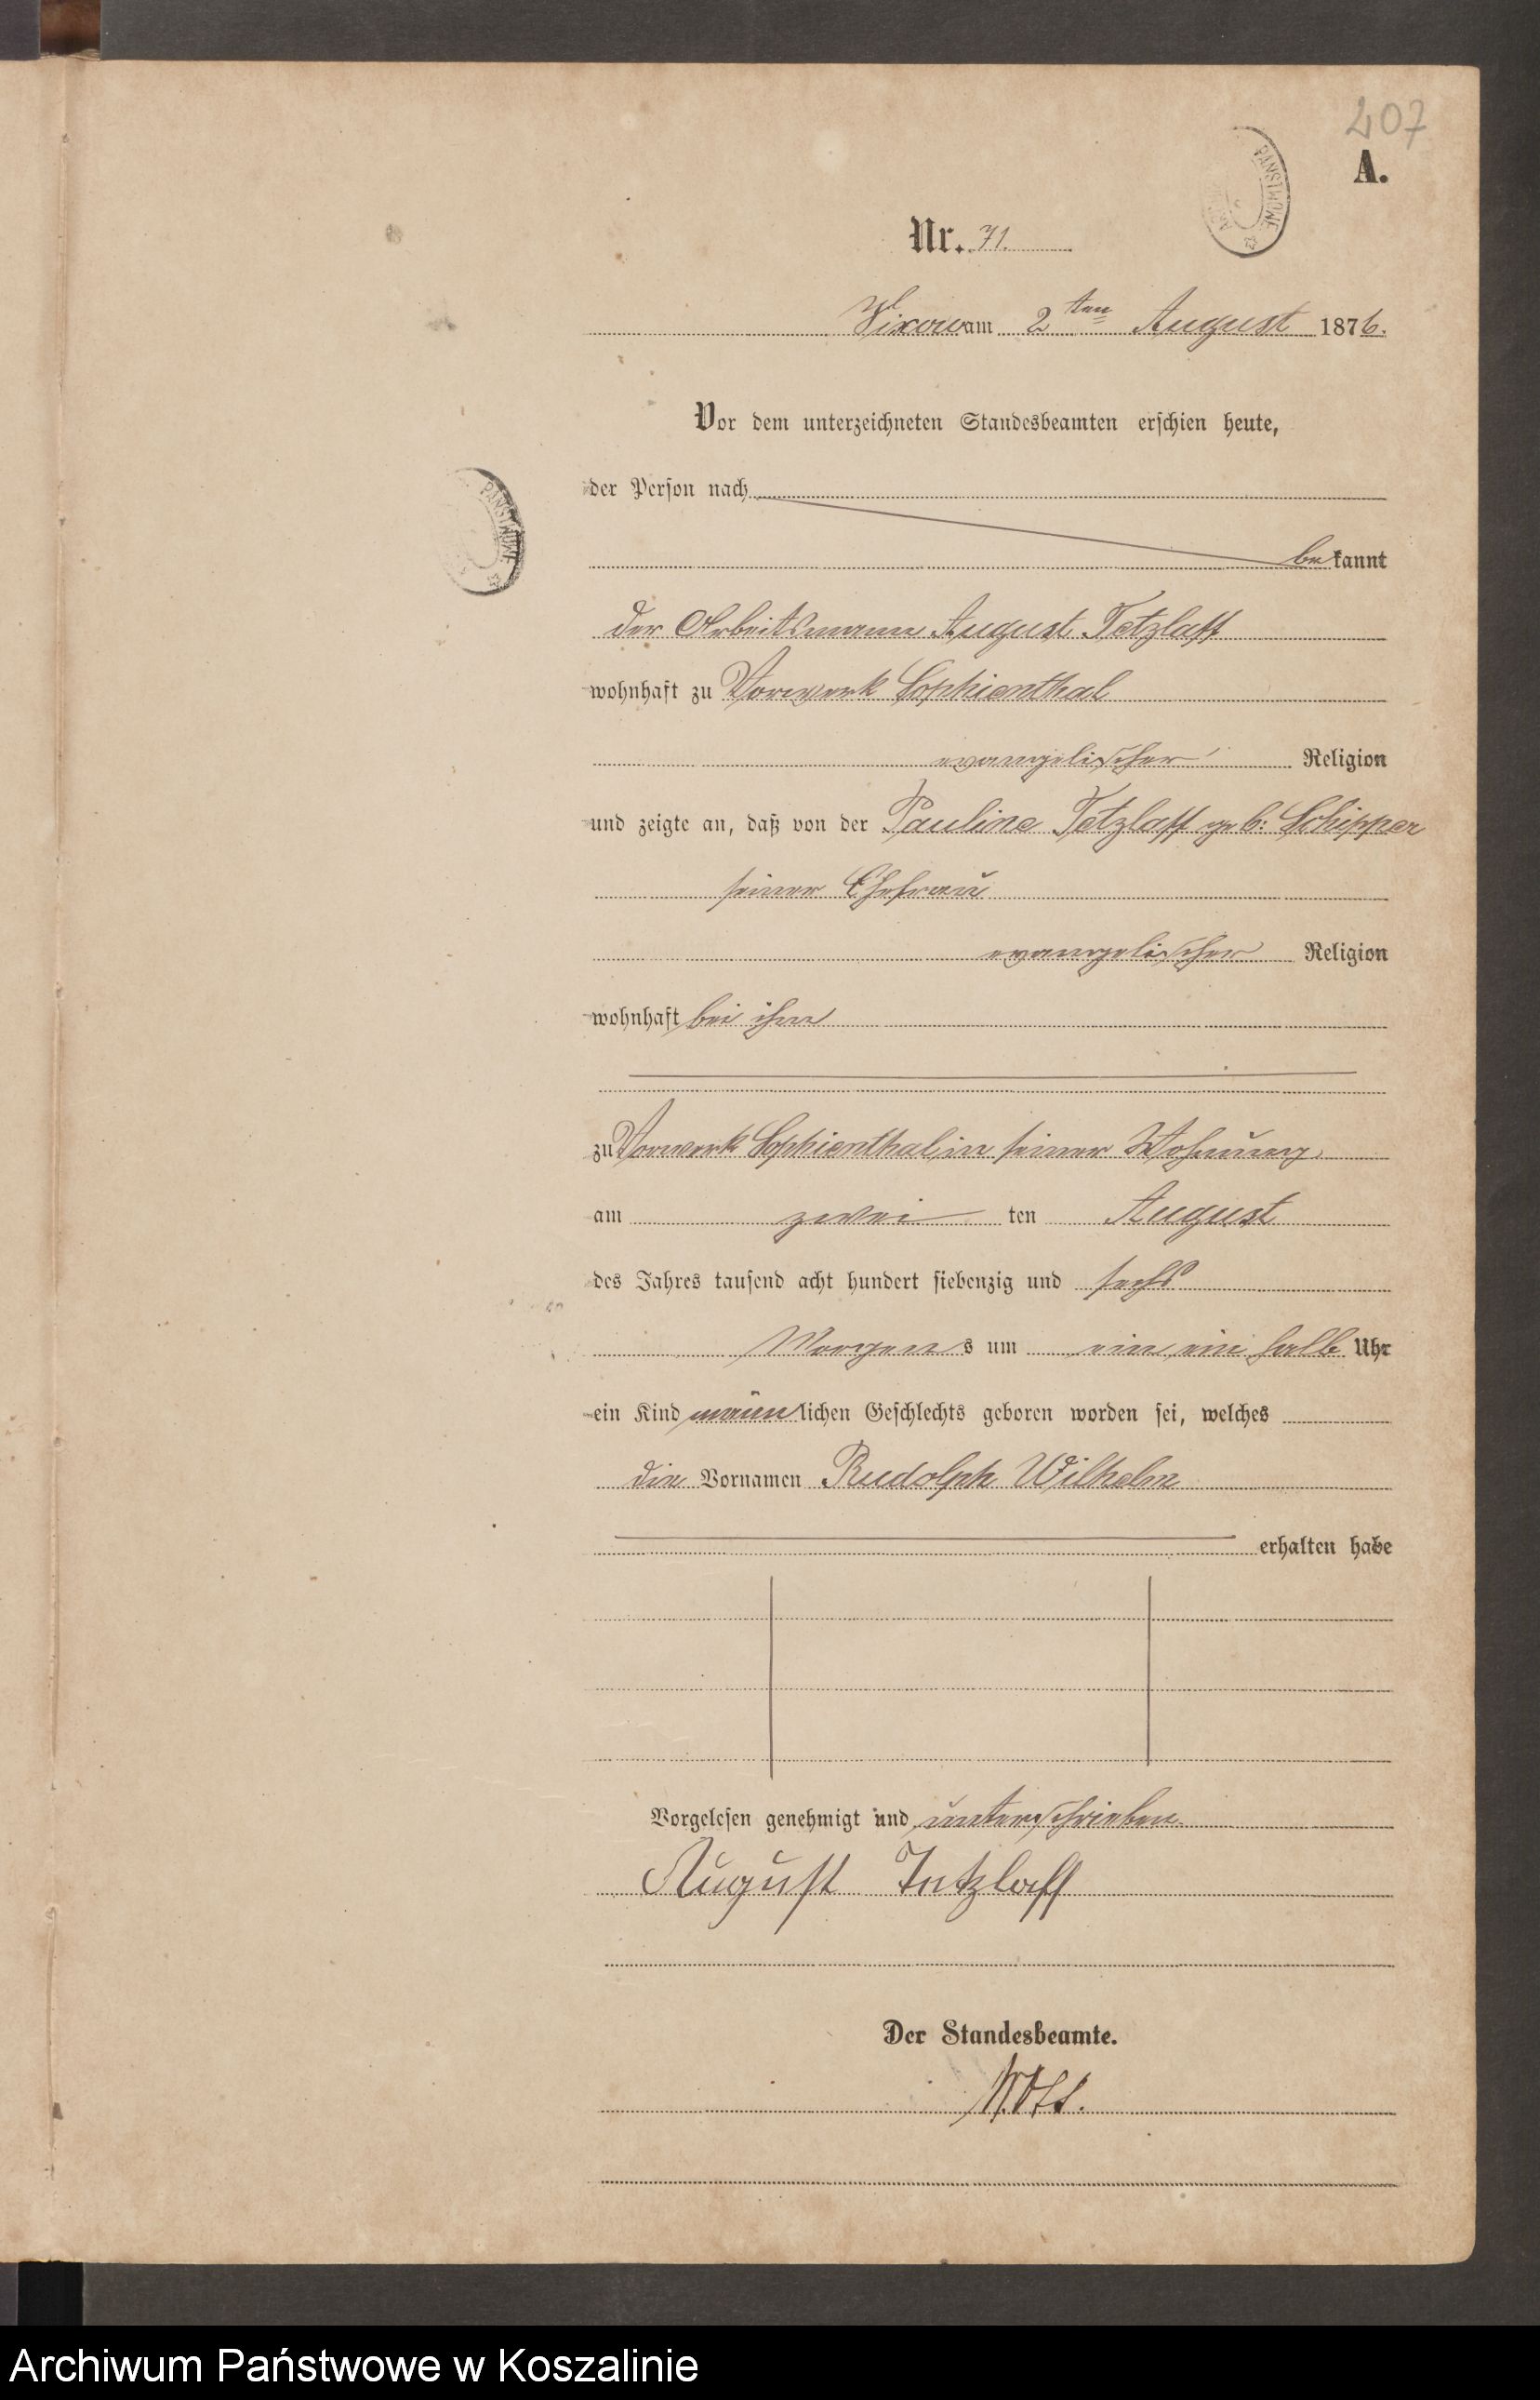 207
A.
PAŃSTWOWE
Nr. 71.
am 2ten August 1876.
Vor dem unterzeichneten Standesbeamten erschien heute,
PAŃSTWOWE
der Person nach
bekannt
der Arbeitsmann August Tetzlaff
wohnhaft zu Vorwerk Sophienthal
evangelischer Religion
und zeigte an, daß von der Pauline Tetzlaff geb: Schipper
seiner Ehefrau
evangelischer Religion
wohnhaft bei ihm
zu Vorwerk Sophienthal in seiner Wohnung
am zwei ten August
des Jahres tausend acht hundert siebenzig und sechs
Morgens um ein ein halb Uhr
ein Kind männlichen Geschlechts geboren worden sei, welches
die Vornamen Rudolph Wilhelm
erhalten habe
Vorgelesen genehmigt und unterschrieben.
August Tetzlaff
Der Standesbeamte.
Archiwum Państwowe w Koszalinie